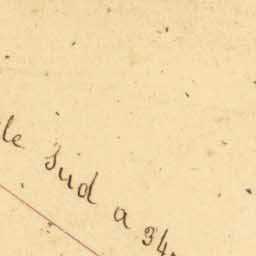 le Sud a 34